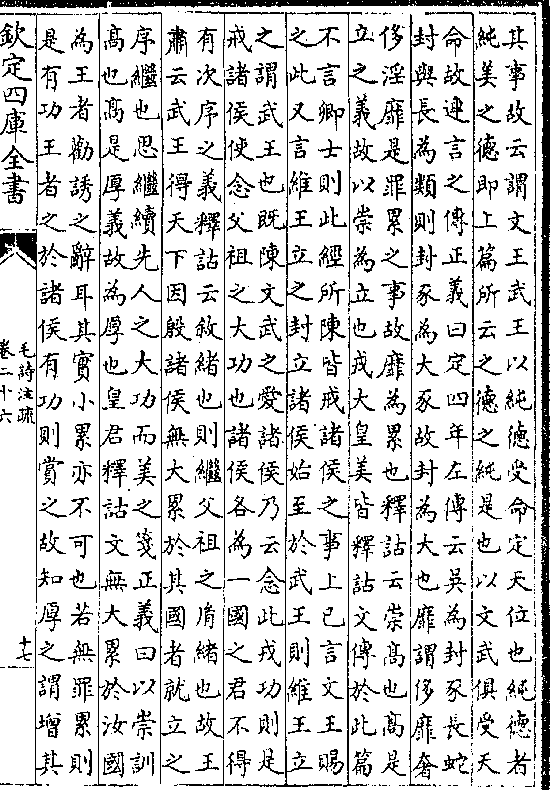 其事故云謂文王武王以純徳受命定天位也純徳者
純美之徳即上篇所云之徳之純是也以文武俱受天
命故連言之傳正義曰定四年左傳云吳為封豕長蛇
封與長為類則封豕為大豕故封為大也靡謂侈靡奢
侈淫靡是罪累之事故靡為累也釋詁云崇髙也髙是
立之義故以崇為立也戎大皇美皆釋詁文傳於此篇
不言卿士則此經所陳皆戒諸侯之事上已言文王賜
之此又言維王立之封立諸侯始至於武王則維王立
之謂武王也既陳文武之愛諸侯乃云念此戎功則是
戒諸侯使念父祖之大功也諸侯各為一國之君不得
有次序之義釋詁云敘緒也則繼父祖之胤緒也故王
肅云武王得天下因殷諸侯無大累於其國者就立之
序繼也思繼續先人之大功而美之箋正義曰以崇訓
髙也髙是厚義故為厚也皇君釋詁文無大累於汝國
為王者勸誘之辭耳其實小累亦不可也若無罪累則
是有功王者之於諸侯有功則賞之故知厚之謂増其
欽定四庫全書
毛詩注疏
卷二十六
十七